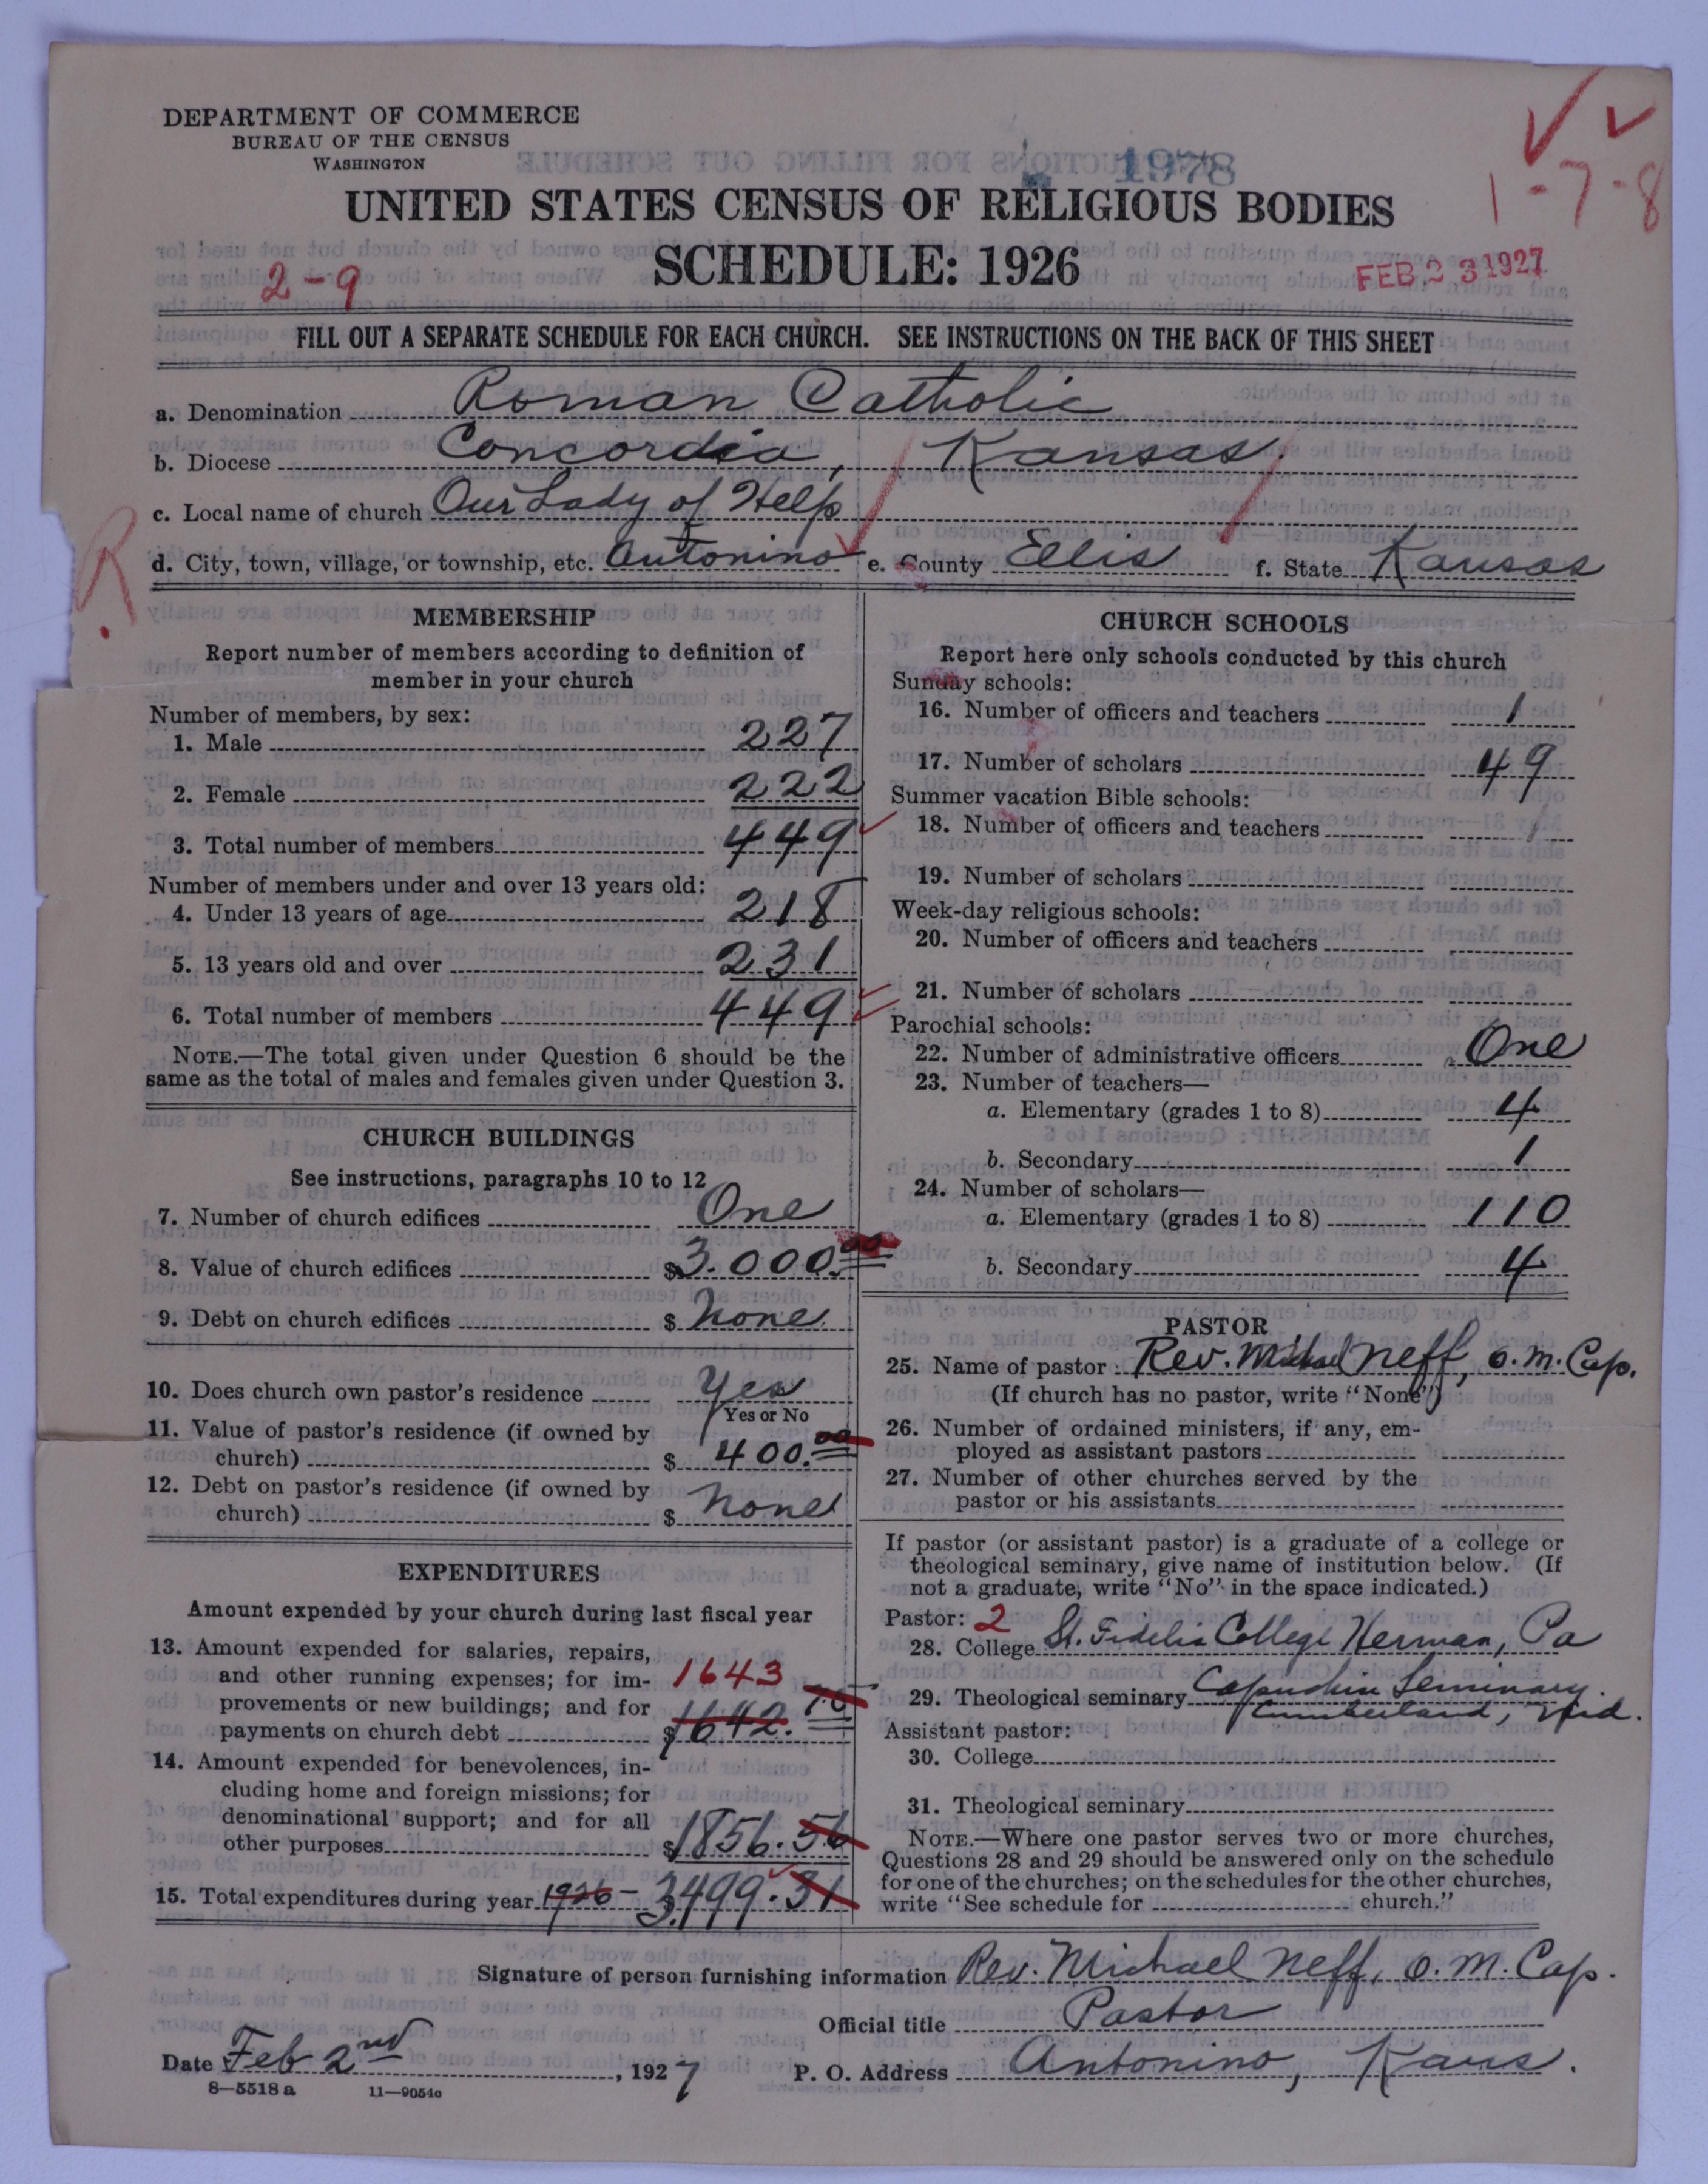 DEPARTMENT OF COMMERCE
BUREAU OF THE CENSUS
WASHINGTON
1978
1-7-8
UNITED STATES CENSUS OF RELIGIOUS BODIES
SCHEDULE: 1926
2-9
FEB 23 1927
FILL OUT A SEPARATE SCHEDULE FOR EACH CHURCH. SEE INSTRUCTIONS ON THE BACK OF THIS SHEET
a. Denomination Roman Catholic
b. Diocese Concordia, Kansas.
c. Local name of church Our Lady of Help
d. City, town, village, or township, etc. Antonino e. County Ellis f. State Kansas
R.
MEMBERSHIP
Report number of members according to definition of
member in your church
Number of members, by sex:
1. Male 227
2. Female 222
3. Total number of members 449
Number of members under and over 13 years old:
4. Under 13 years of age 218
5. 13 years old and over 231
6. Total number of members 449
NOTE.—The total given under Question 6 should be the
same as the total of males and females given under Question 3.
CHURCH BUILDINGS
See instructions, paragraphs 10 to 12
7. Number of church edifices One
8. Value of church edifices $3.000.00
9. Debt on church edifices $ None
10. Does church own pastor's residence Yes
Yes or No
11. Value of pastor's residence (if owned by
church) $ 400.00
12. Debt on pastor's residence (if owned by
church) $ None
EXPENDITURES
Amount expended by your church during last fiscal year
13. Amount expended for salaries, repairs,
and other running expenses; for im- 1643
provements or new buildings; and for
payments on church debt $1642.75
14. Amount expended for benevolences, in-
cluding home and foreign missions; for
denominational support; and for all
other purposes $1856.56
15. Total expenditures during year 1926 - 3499.31
CHURCH SCHOOLS
Report here only schools conducted by this church
Sunday schools:
16. Number of officers and teachers 1
17. Number of scholars 49
Summer vacation Bible schools:
18. Number of officers and teachers
19. Number of scholars
Week-day religious schools:
20. Number of officers and teachers
21. Number of scholars
Parochial schools:
22. Number of administrative officers One
23. Number of teachers—
a. Elementary (grades 1 to 8) 4
b. Secondary 1
24. Number of scholars—
a. Elementary (grades 1 to 8) 110
b. Secondary 4
PASTOR
25. Name of pastor Rev. Michael Neff, O.M.Cap.
(If church has no pastor, write "None")
26. Number of ordained ministers, if any, em-
ployed as assistant pastors
27. Number of other churches served by the
pastor or his assistants
If pastor (or assistant pastor) is a graduate of a college or
theological seminary, give name of institution below. (If
not a graduate, write "No" in the space indicated.)
Pastor: 2
28. College St. Fidelis College Herman, Pa
29. Theological seminary Capuchin Seminary.
Cumberland, Md.
Assistant pastor:
30. College
31. Theological seminary
NOTE.—Where one pastor serves two or more churches,
Questions 28 and 29 should be answered only on the schedule
for one of the churches; on the schedules for the other churches,
write "See schedule for church."
Signature of person furnishing information Rev. Michael Neff, O.M.Cap.
Official title Pastor
Date Feb 2nd, 1927 P. O. Address Antonino, Kans.
8—5518 a 11—9054c